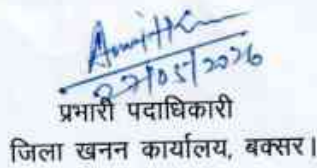 27/05/2026
प्रभारी पदाधिकारी
जिला खनन कार्यालय, बक्सर।